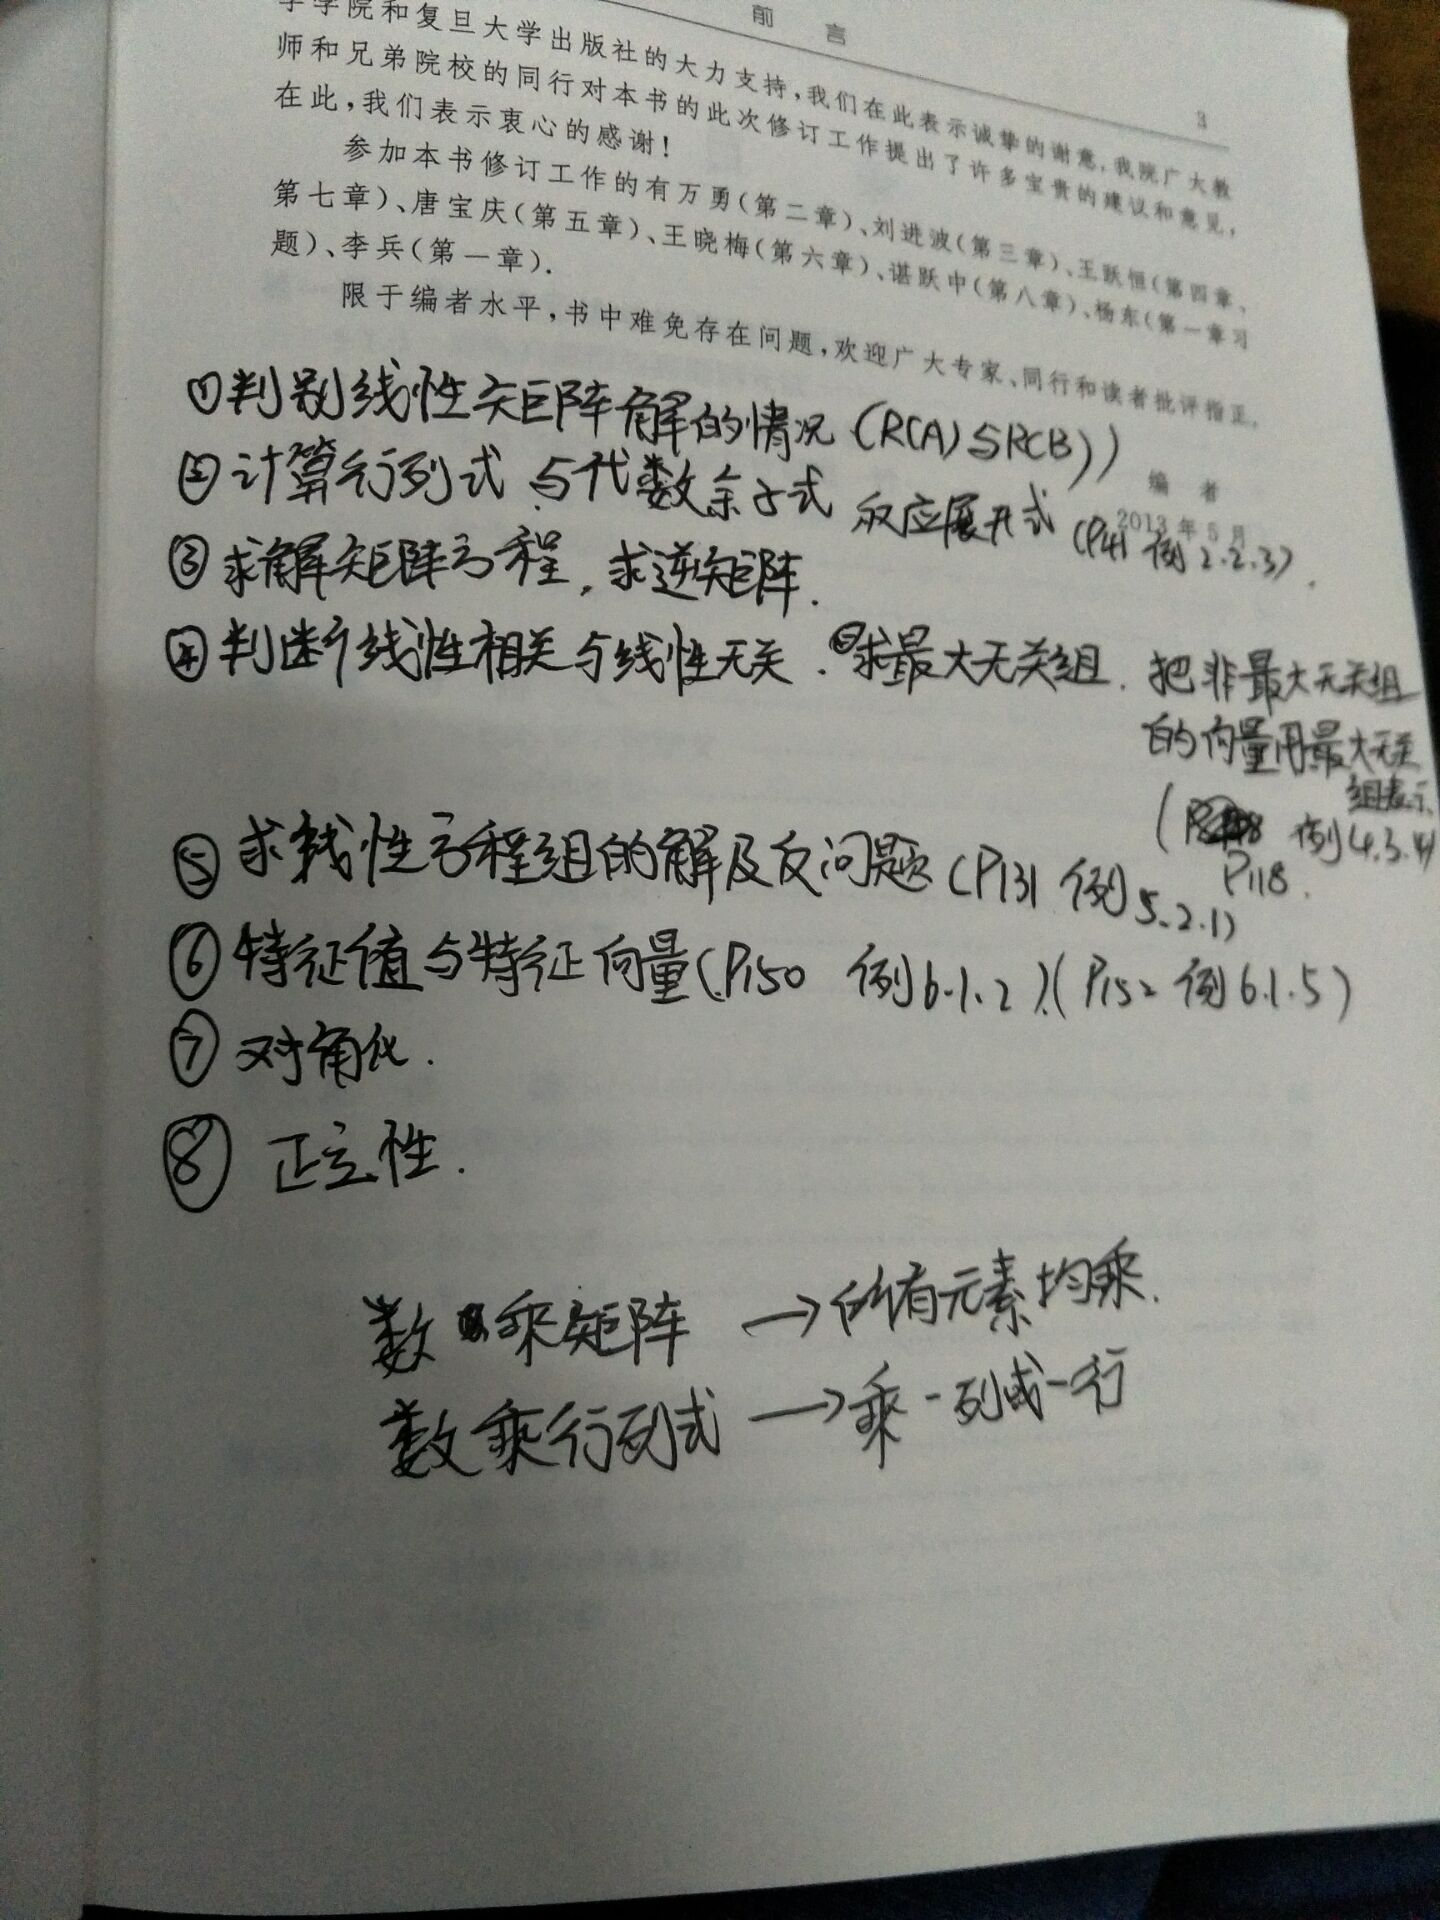 前 言
3
学学院和复旦大学出版社的大力支持,我们在此表示诚挚的谢意,我院广大教
师和兄弟院校的同行对本书的此次修订工作提出了许多宝贵的建议和意见,
在此,我们表示衷心的感谢!
参加本书修订工作的有万勇(第二章)、刘进波(第三章)、王跃恒(第四章、
第七章)、唐宝庆(第五章)、王晓梅(第六章)、谌跃中(第八章)、杨东(第一章习
题)、李兵(第一章).
限于编者水平,书中难免存在问题,欢迎广大专家、同行和读者批评指正.
编 者
2013年5月
①判别线性矩阵解的情况(R(A)与R(B))
②计算行列式与代数余子式 展开式(P41 例2.2.3).
③求解矩阵方程,求逆矩阵.
④判断线性相关与线性无关.求最大无关组.把非最大无关组
的向量用最大无关
组表示
( 例4.3.4)
P118.
⑤求线性方程组的解及反问题(P131 例5.2.1)
⑥特征值与特征向量(P150 例6.1.2)(P152 例6.1.5)
⑦对角化.
⑧正定性.
数乘矩阵→所有元素均乘.
数乘行列式→乘一列或一行